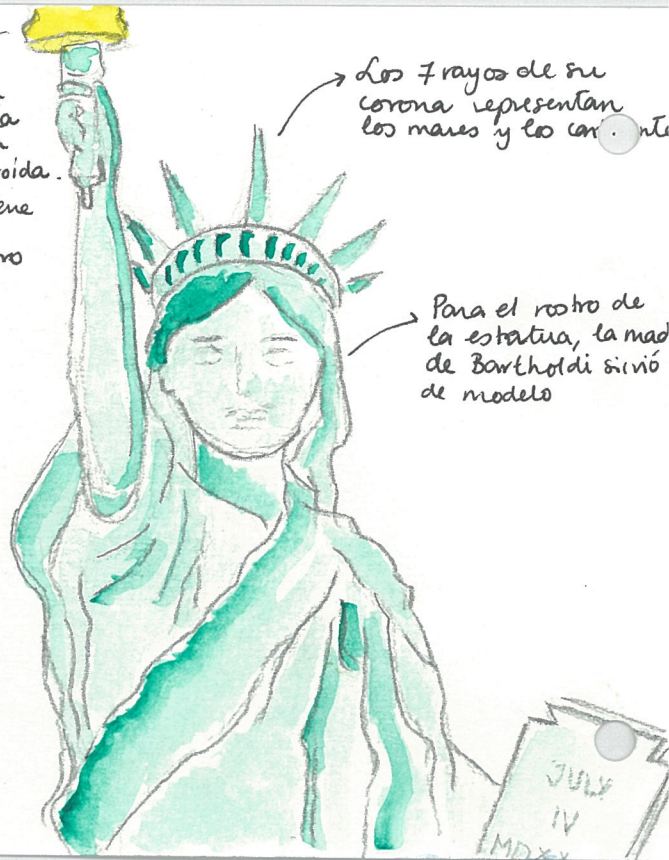 oída.
Los 7 rayos de su
corona representan
los mares y los
Para el rostro de
la estatua, la mad
de Bartholdi sirvió
de modelo
JULY
IV